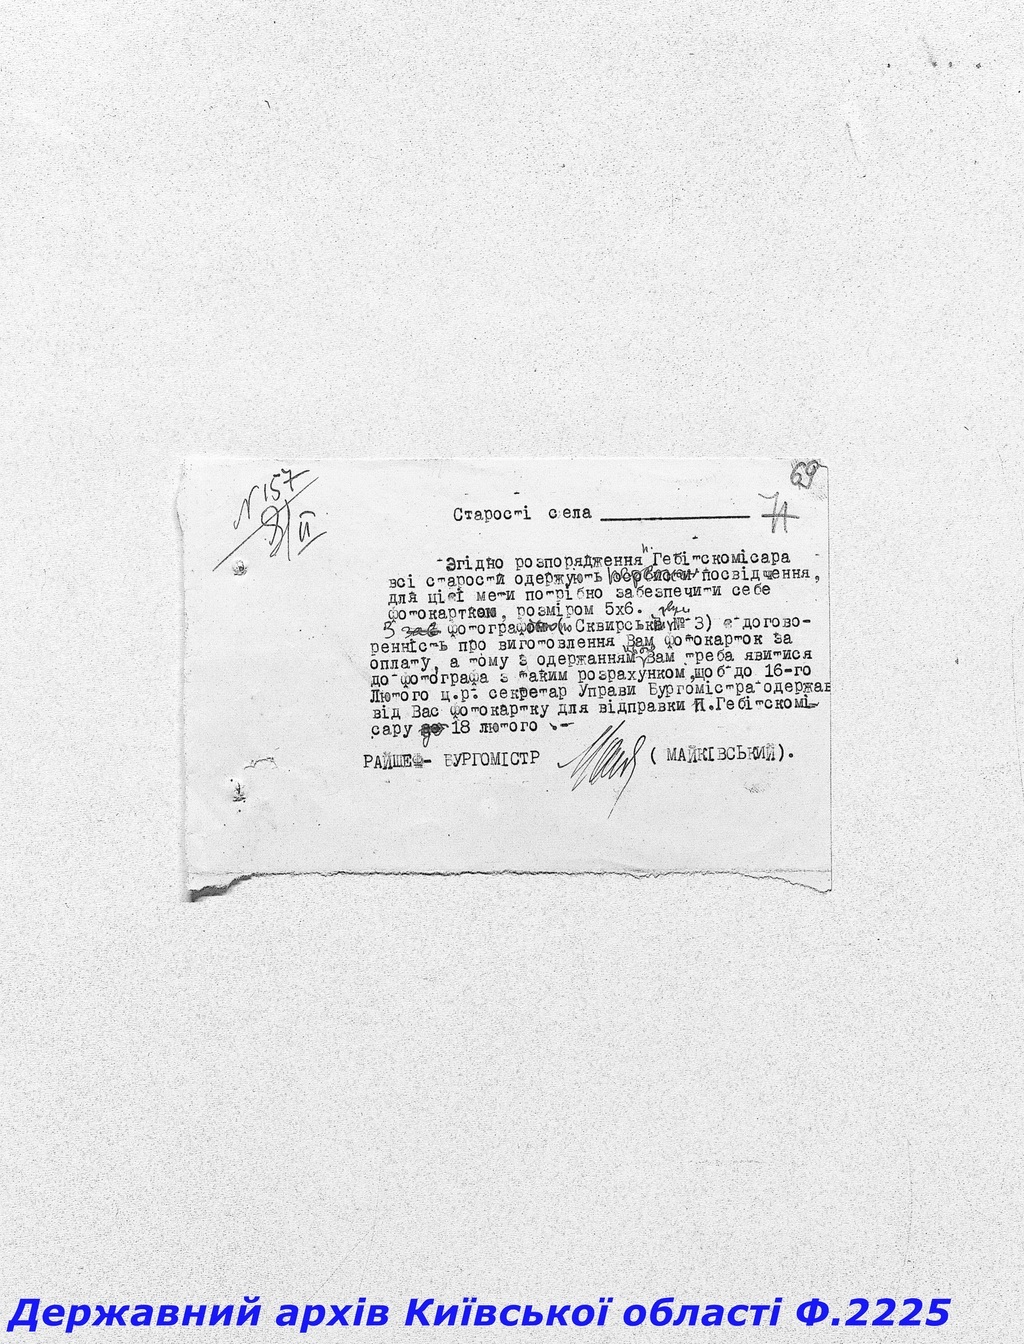 N 157
8/II
69
71
Старості села
Згідно розпорядження п. Гебітскомісара
всі старости одержують посвідчення,
для цієї мети потрібно забезпечити себе
фотокарткою, розміром 5х6.
З фотографом (ю Сквирський № 3) є догово-
ренність про виготовлення Вам фотокарток за
оплату, а тому з одержанням Вам треба явитися
до фотографа з таким розрахунком, щоб до 16-го
Лютого ц.р. секретар Управи Бургомістра одержав
від Вас фотокартку для відправки П.Гебітскомі-
сару до 18 лютого .-
РАЙШЕФ- БУРГОМІСТР ( МАЙКІВСЬКИЙ).
Державний архів Київської області Ф.2225